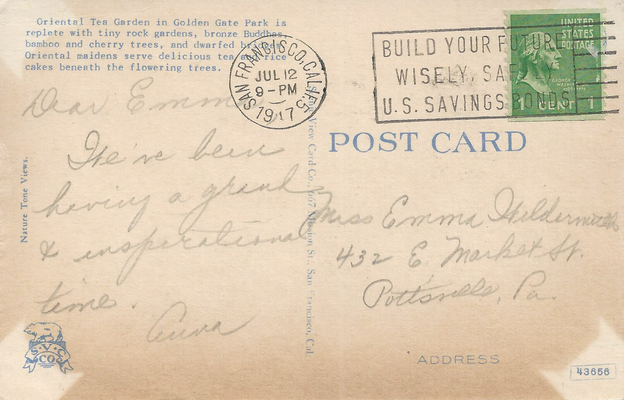 Oriental Tea Garden in Golden Gate Park is
replete with tiny rock gardens, bronze Buddhas,
bamboo and cherry trees, and dwarfed
Oriental maidens serve delicious tea rice
cakes beneath the flowering trees.
SAN FRANCISCO, CALIF.
JUL 12
9-PM
1947
BUILD YOUR FUTURE
WISELY, SAFELY
U.S. SAVINGS BONDS
UNITED
STATES
POSTAGE
1 CENT 1
POST CARD
Dear Emma
We've been
having a grand
& inspirational
time.
Anna
Miss Emma
432 E. Market St.
Pottsville, Pa.
Nature Tone Views.
View Card Co., Mission St., San Francisco, Cal.
S.V.C.
CO.
ADDRESS
43656